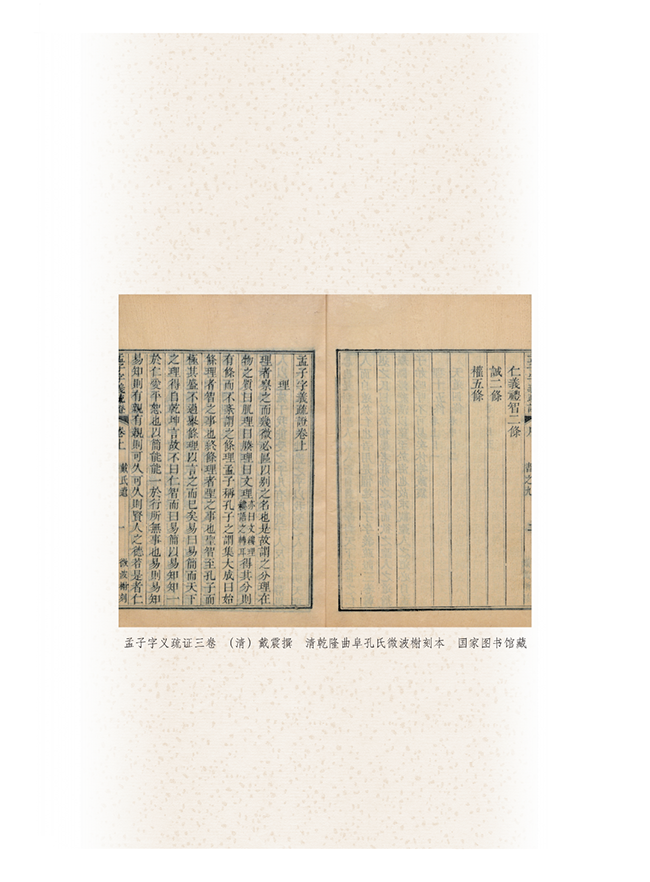 仁義禮智二條
誠二條
權五條
孟子字義疏證卷上
理
理者察之而幾微必區㠯別之名也是故謂之分理在
物之質曰肌理曰腠理曰文理亦曰文縷理縷語之轉耳得其分則
有條而不紊謂之條理孟子稱孔子之謂集大成曰始
條理者智之事也終條理者聖之事也聖智至孔子而
極其盛不過舉條理㠯言之而已矣易曰易簡而天下
之理得自乾坤言故不曰仁智而曰易簡㠯易知知一
於仁愛平恕也㠯簡能能一於行所無事也易則易知
易知則有親有親則可久可久則賢人之德若是者仁
孟子字義疏證 卷上 戴氏遺 一 微波榭刻
孟子字义疏证三卷 （清）戴震撰 清乾隆曲阜孔氏微波榭刻本 国家图书馆藏